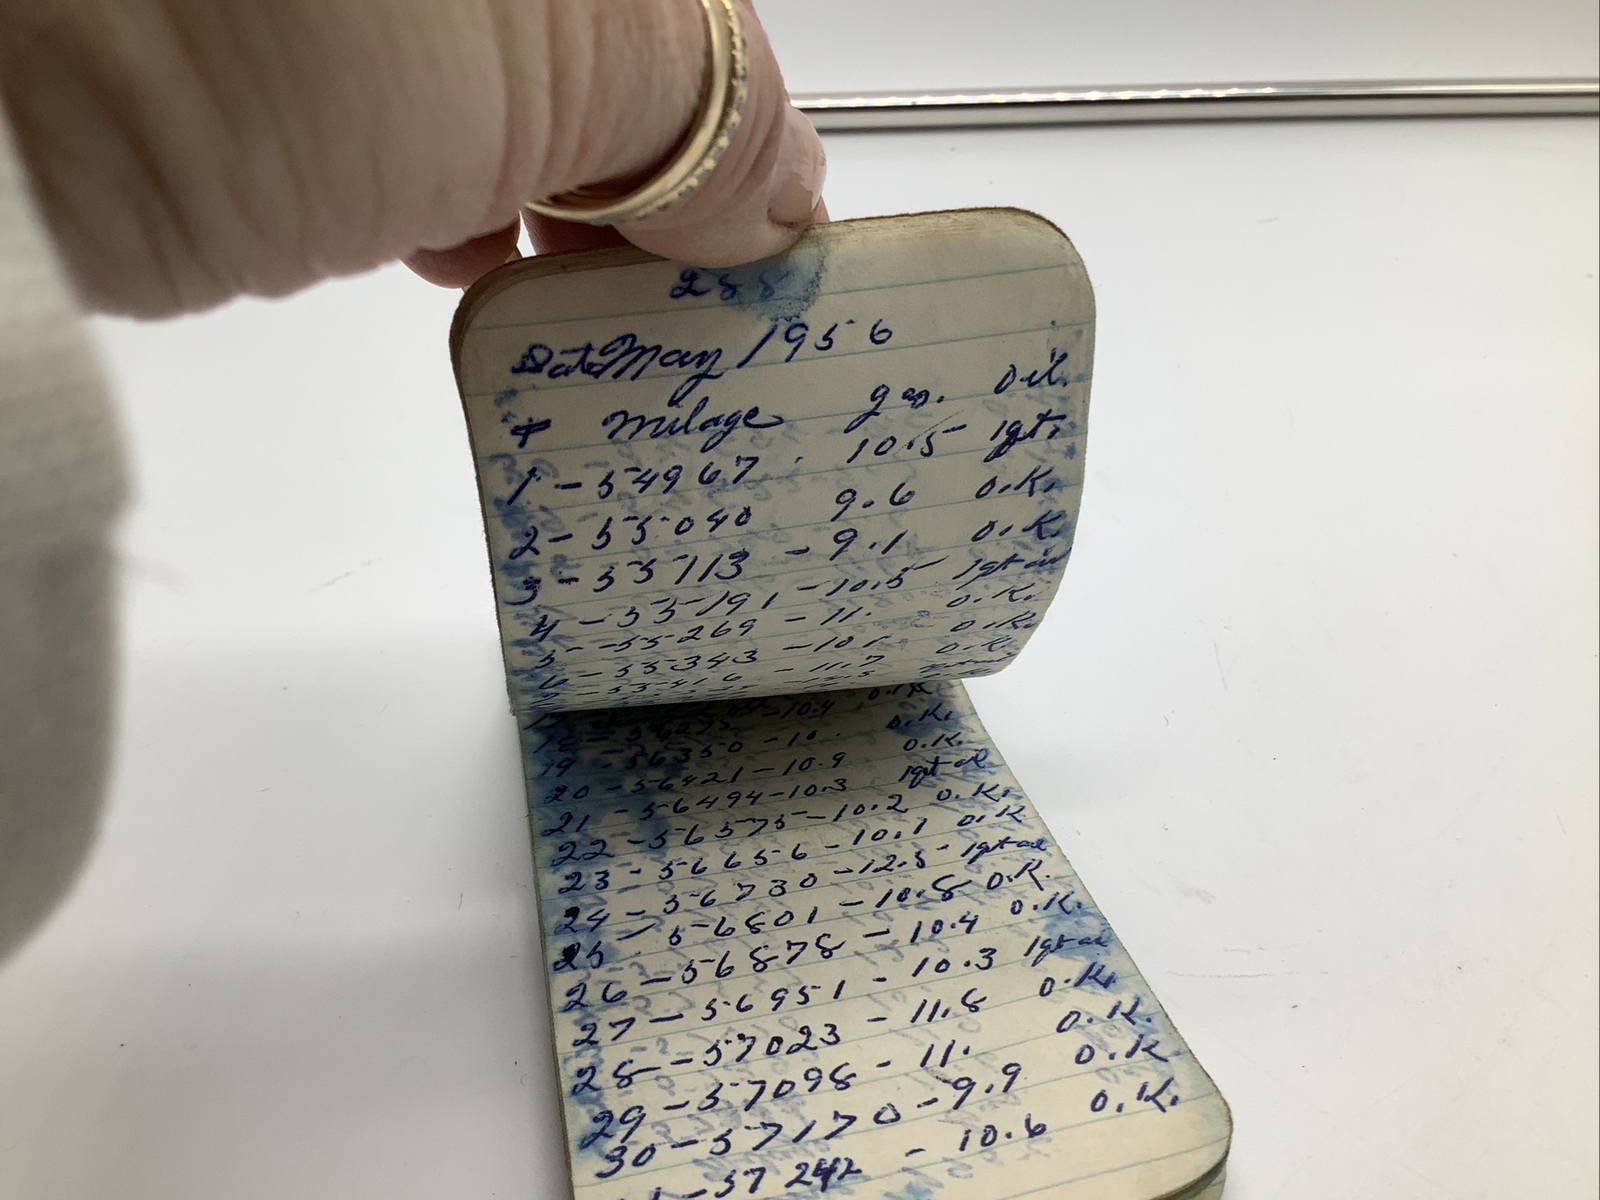 255
Date May 1956
Milage gas. oil.
1 - 54967 10.5 1qt.
2 - 55040 9.6 O.K.
3 - 55113 - 9.1 O.K
4 - 55191 - 10.5 1qt oil
5 - 55269 - 11. O.K.
6 - 55343 - 10. O.K.
55416 - 11.7 O.K.
18 - 56275 - 10.4 O.K
19 - 56350 - 10. O.K.
20 - 56421 - 10.9 O.K.
21 - 56494 - 10.3 1qt oil
22 - 56575 - 10.2 O.K.
23 - 56656 - 10.1 O.K
24 - 56730 - 12.5 - 1qt oil
25 - 56801 - 10.8 O.K.
26 - 56878 - 10.4 O.K.
27 - 56951 - 10.3 1qt oil
28 - 57023 - 11.8 O.K.
29 - 57098 - 11. O.K.
30 - 57170 - 9.9 O.K
57242 - 10.6 O.K.